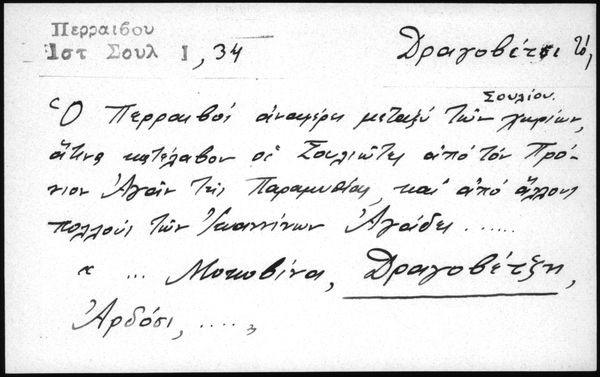 Περραιβου
Ιστ Σουλ Ι , 34
Δραγοβέτσι τό,
Σουλίου.
Ὁ Περραιβός ἀναφέρει μεταξύ τῶν χωρίων,
ἅτινα κατέλαβον οἱ Σουλιῶτες ἀπό τόν Πρό-
νιον Ἀγᾶν τῆς Παραμυθίας, καί ἀπό ἄλλους
πολλούς τῶν Ἰωαννίνων Ἀγάδες ......
" ... Μοκοβίνα, Δραγοβέτζη,
Ἀρδόσι, .....,